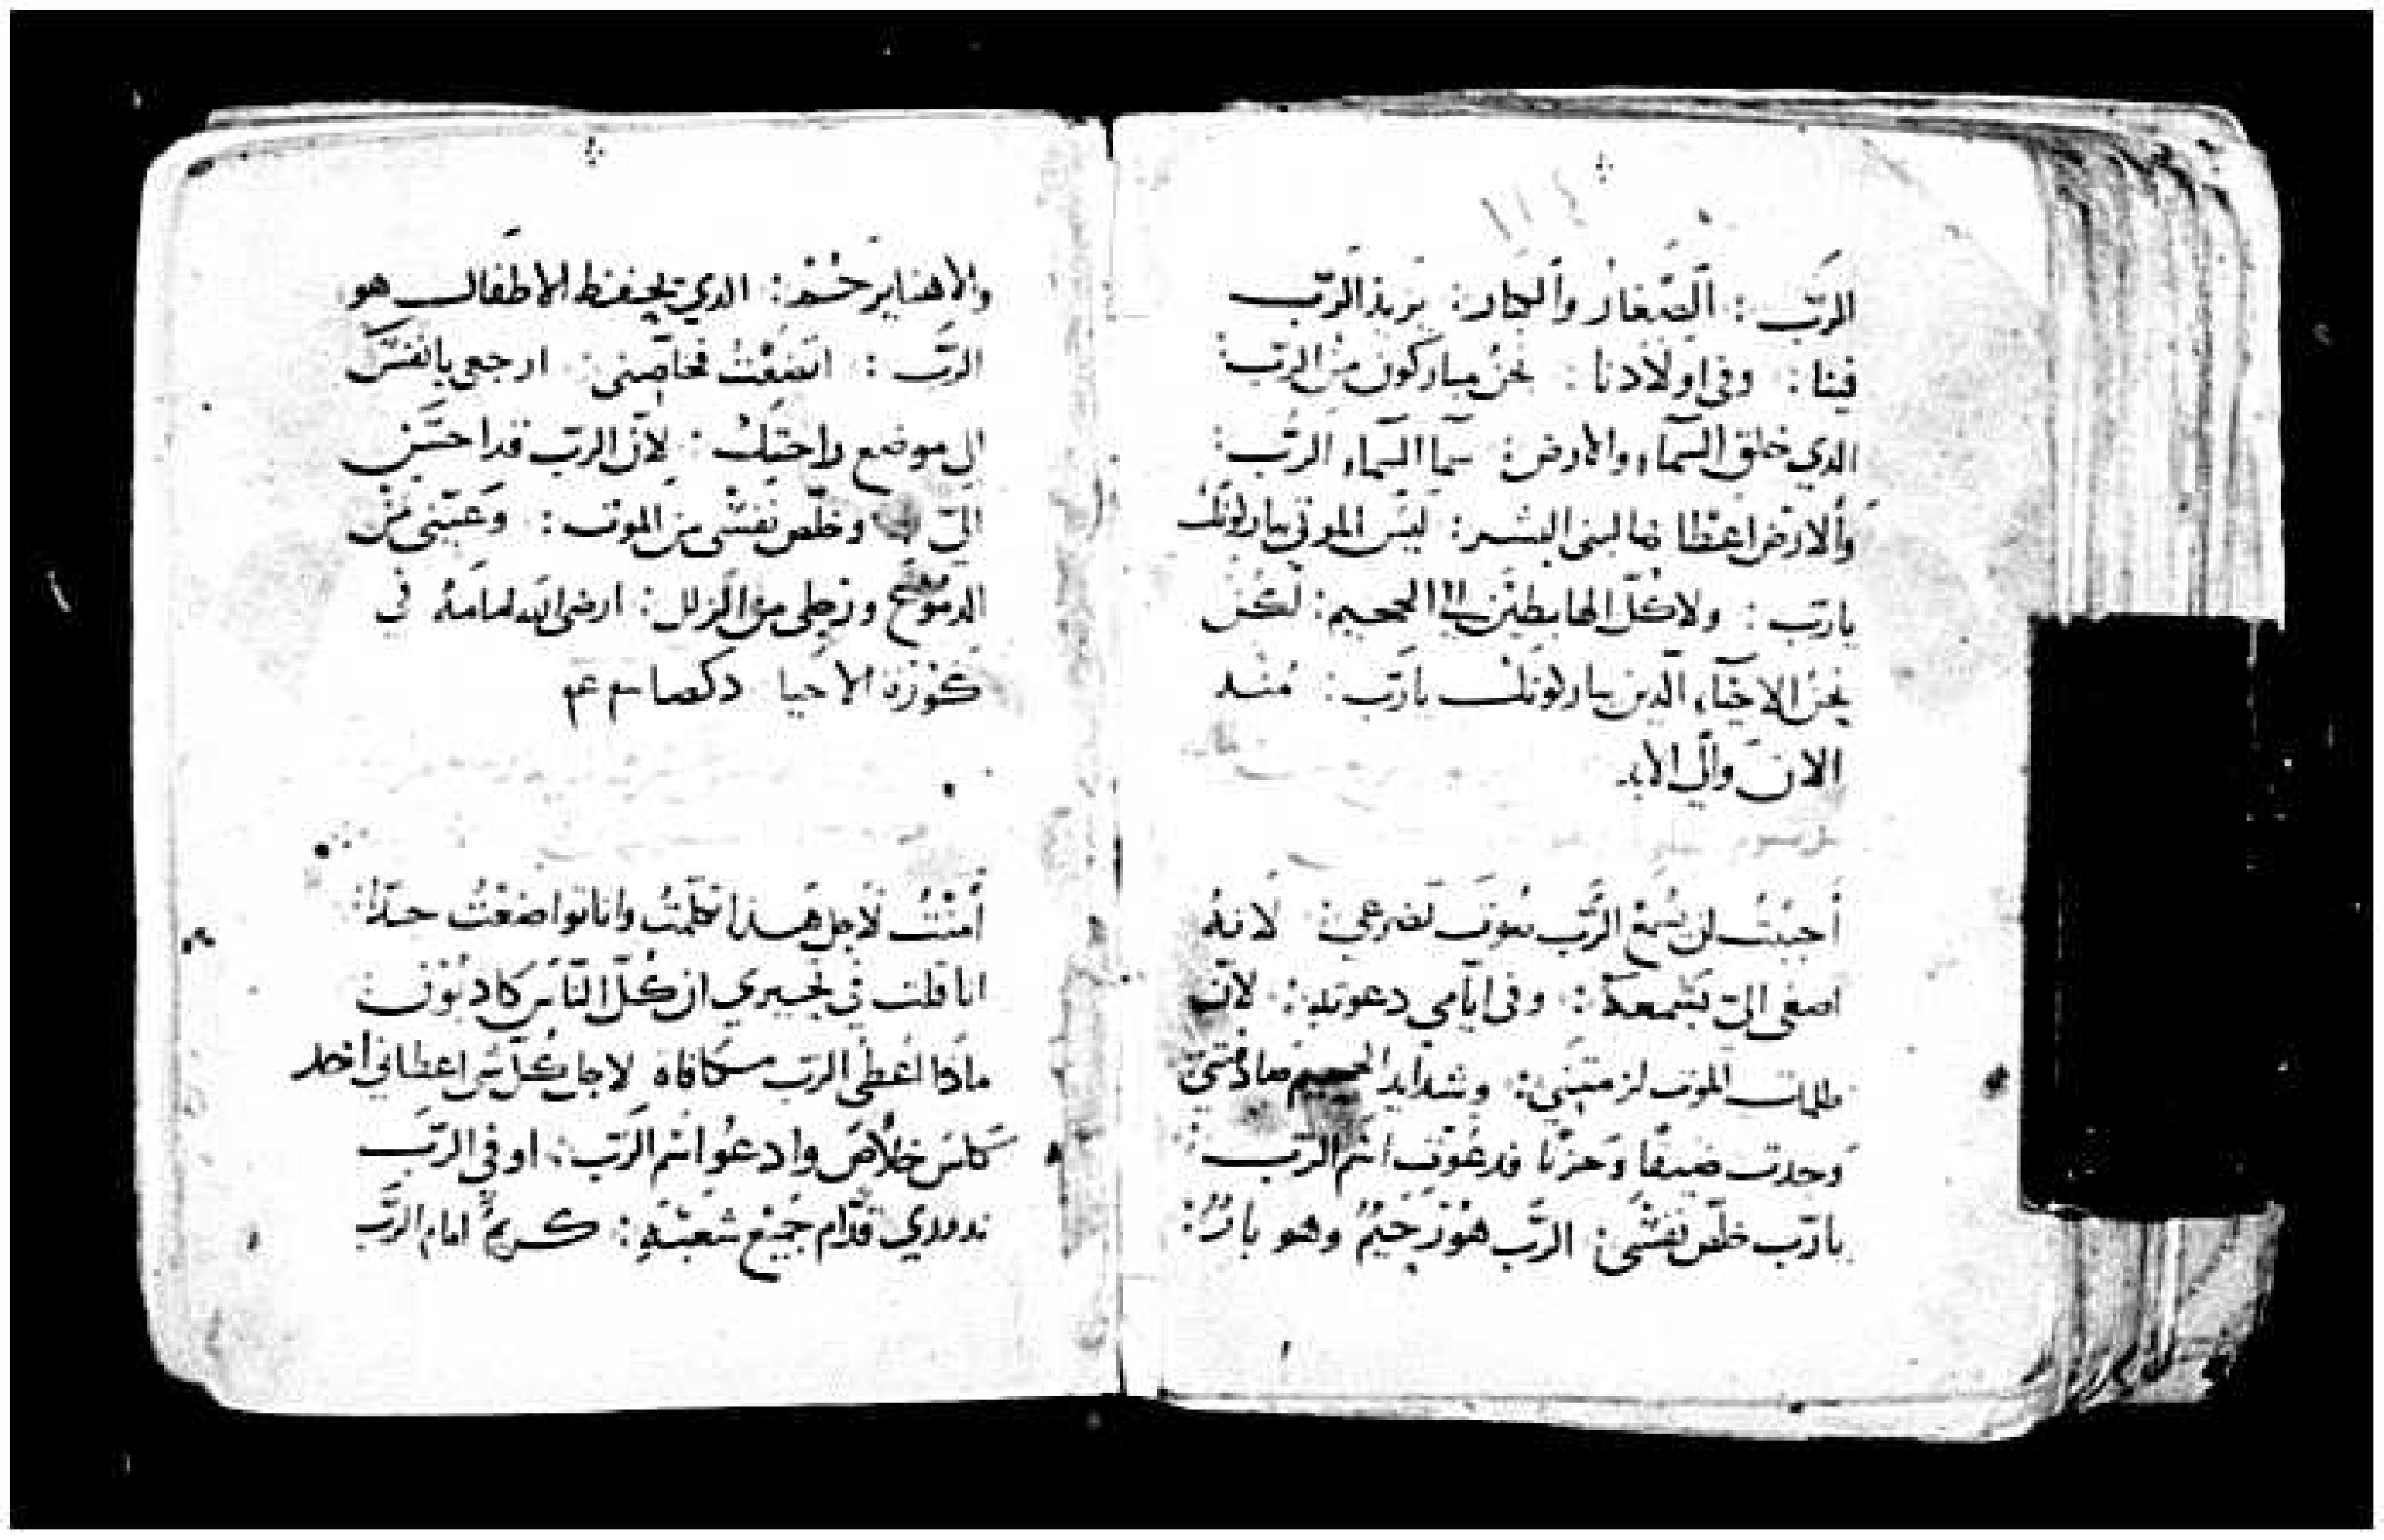 الرّب : الصّغار والكبار : يزيد الرّب
فينا : وفي اولادنا : نحن مباركون من الرّب :
الدي خلق السّماء والارض : سما السّماء الرّب :
والارض اعطاها لبني البشر : ليس الموتي يباركونك
يارّب : ولا كلّ الهابطين الي الجحيم : لكن
نحن الاحياء الّدين يباركونك يارّب : مند
الان والي الابد
أحببت لن يسمع الرّب صوت تضرعي : لانه
اصغي اليّ بسمعه : وفي ايّامي دعوته : لانّ
طلمات الموت لزمتني : وشدايد الجحيم صادفتني
وجدت ضيقا وحزنا فدعوت اسم الرّب :
يارّب خلّص نفسي : الرّب هو رحيم وهو بارّ :
والاهنا يرحم : الدي يحفظ الاطفال هو
الرّب : اتضعت فخلّصني : ارجعي يا نفس
الي موضع راحتك : لانّ الرّب قد احسن
اليّ وخلّص نفسي من الموت : وعيني من
الدموع ورجلي من الزلل : ارضي الله امامه في
كورة الاحيا
أمنت لاجل هدا تكلّمت وانا تواضعت جدّا :
انا قلت في تحيري ان كلّ النّاس كادبون :
مادا اعطي الرّب مكافاة لاجل كلّ شي اعطاني اخد
كاس خلاص وادعو اسم الرّب : اوفي الرّب
ندوري قدّام جميع شعبه : كريم امام الرّب